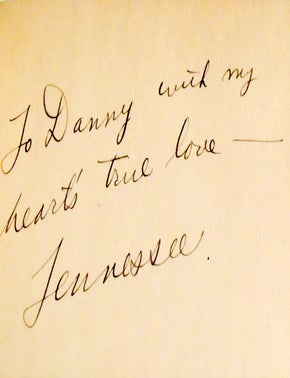 To Danny with my
heart's true love —
Tennessee.